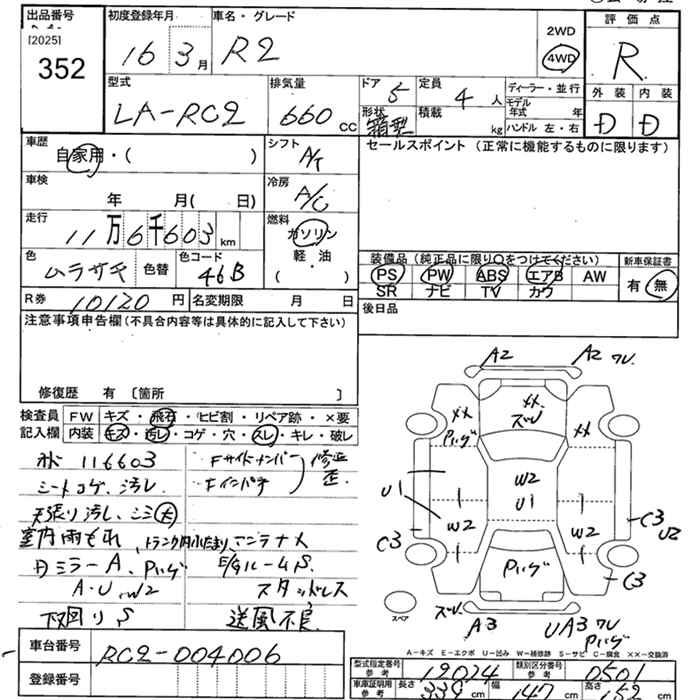 出品番号
[2025]
352
初度登録年月
16 3月
車名・グレード
R2
2WD
4WD
評価点
R
型式
LA-RC2
排気量
660 cc
ドア
5
形状
箱型
定員
4 人
積載
kg
ディーラー・並行
モデル年式 年
ハンドル 左・右
外装 内装
D D
車歴
自家用・( )
シフト
A/T
車検
年 月( 日)
冷房
A/C
走行
11万6千603 km
燃料
ガソリン
軽油
( )
色
ムラサキ
色替
色コード
46B
R券 10120円
名変期限 月 日
セールスポイント (正常に機能するものに限ります)
装備品 (純正品に限り○をつけてください)
新車保証書
PS PW ABS エアB AW
SR ナビ TV カワ
有・無
後日品
注意事項申告欄(不具合内容等は具体的に記入して下さい)
修復歴 有 〔箇所 〕
検査員記入欄
FW キズ・飛石・ヒビ割・リペア跡・×要
内装 キズ・汚レ・コゲ・穴・スレ・キレ・破レ
116603
シートコゲ、汚レ
天張り汚レ、シミ(大)
室内雨もれ
ミラーA、Pハゲ
A・U、W2
下回りS
Fサイドメンバー
Fインパネ
修正
歪
E/GルームS
スタッドレス
送風不良
車台番号
RC2-004006
登録番号
A2
A2 ワレ
Pハゲ
ズレ
W2
U1
U1
W2
W2
C3
C3
U2
C3
Pハゲ
スペア
ズレ
A3
UA3 ワレ
Pハゲ
A-キズ E-エクボ U-凹み W-補修跡 S-サビ C-腐食 ××-交換済
型式指定番号 参考
12024
類別区分番号 参考
0501
車庫証明用 参考
長さ 339cm
幅 147cm
高さ 152cm